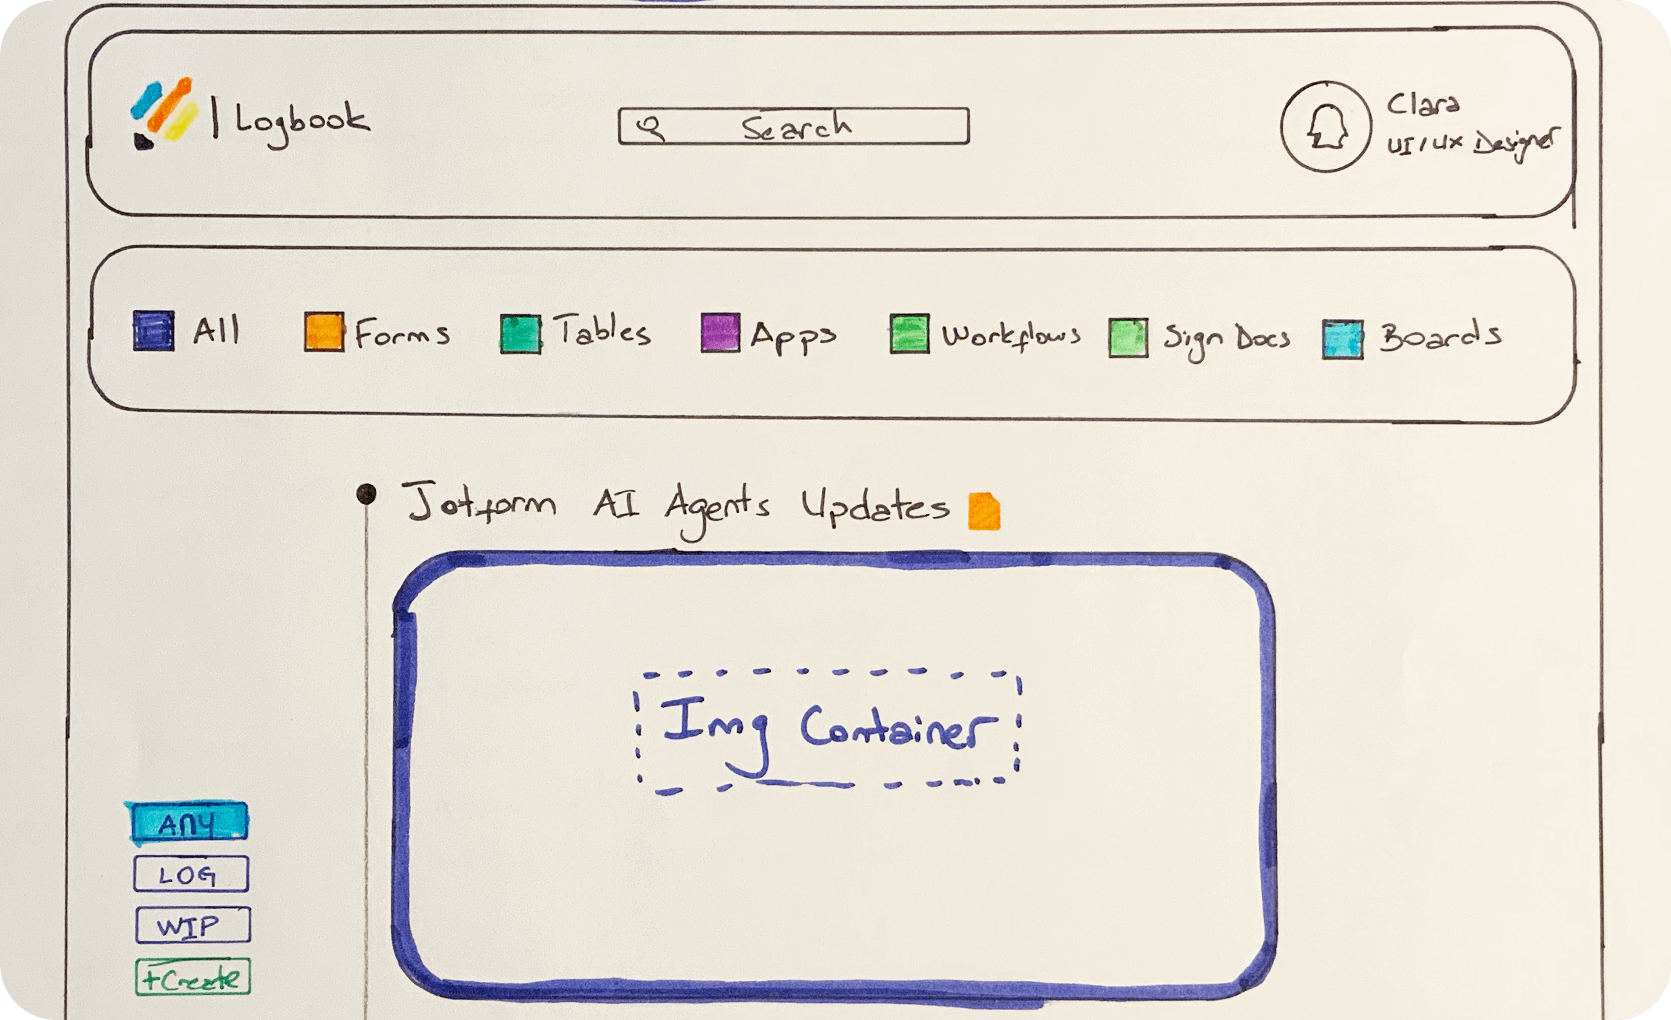 | Logbook
Search
Clara
UI/UX Designer
All
Forms
Tables
Apps
Workflows
Sign Docs
Boards
Jotform AI Agents Updates
Img Container
ANY
LOG
WIP
+Create